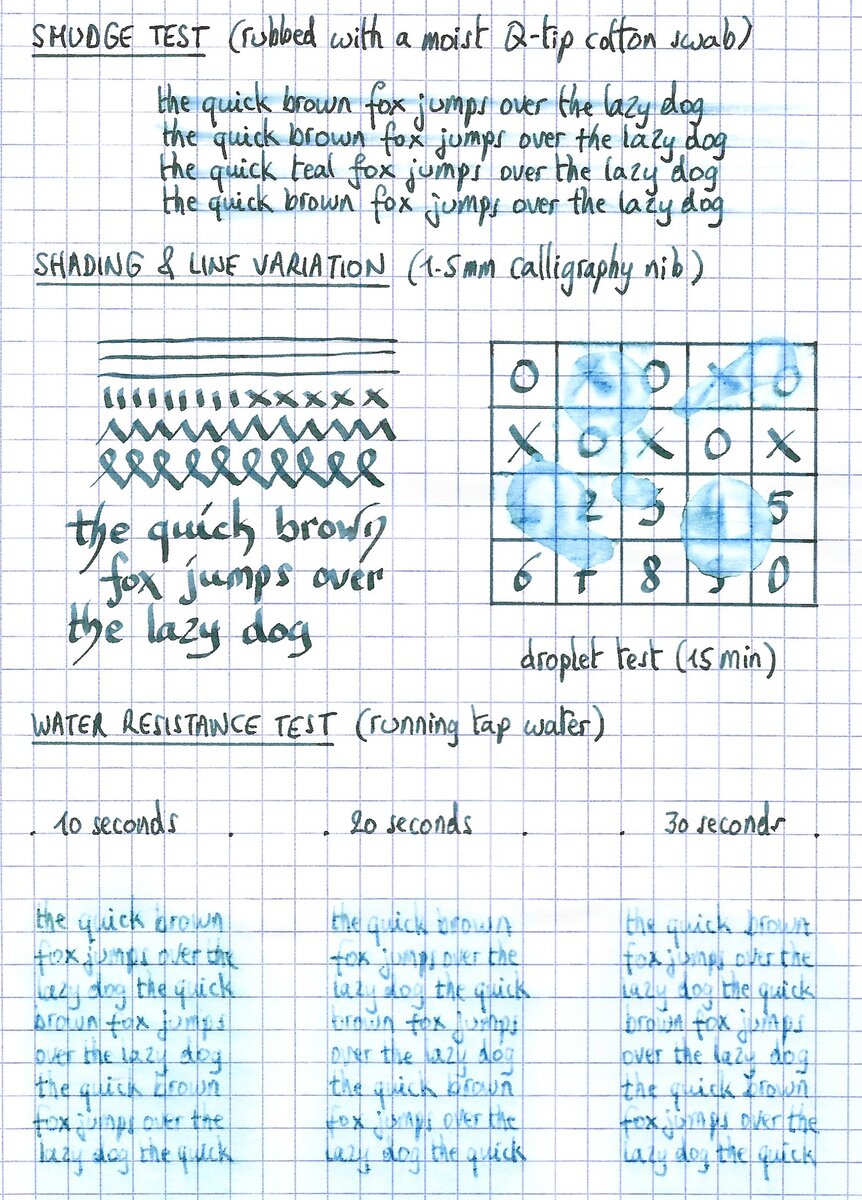 SMUDGE TEST (rubbed with a moist Q-tip cotton swab)
the quick brown fox jumps over the lazy dog
the quick brown fox jumps over the lazy dog
the quick teal fox jumps over the lazy dog
the quick brown fox jumps over the lazy dog
SHADING & LINE VARIATION (1.5mm calligraphy nib)
the quick brown
fox jumps over
the lazy dog
O X O X O
X O X O X
1 2 3 4 5
6 7 8 9 0
droplet test (15 min)
WATER RESISTANCE TEST (running tap water)
. 10 seconds . . 20 seconds . . 30 seconds .
the quick brown
fox jumps over the
lazy dog the quick
brown fox jumps
over the lazy dog
the quick brown
fox jumps over the
lazy dog the quick
the quick brown
fox jumps over the
lazy dog the quick
brown fox jumps
over the lazy dog
the quick brown
fox jumps over the
lazy dog the quick
the quick brown
fox jumps over the
lazy dog the quick
brown fox jumps
over the lazy dog
the quick brown
fox jumps over the
lazy dog the quick